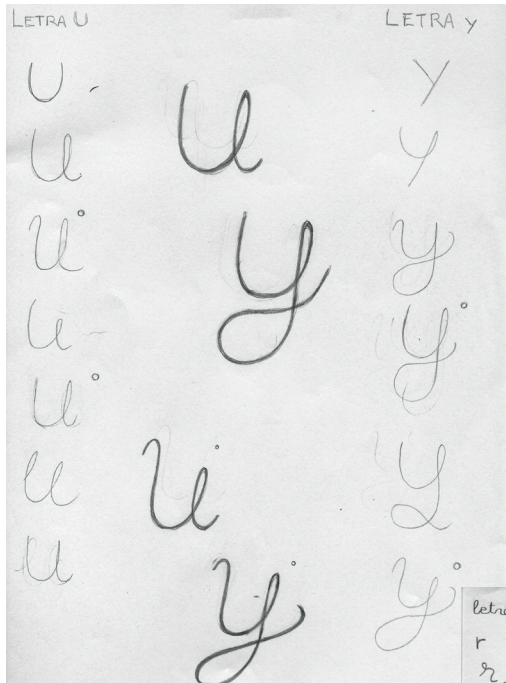 LETRA U
U
U
U°
U
U°
U
U
U
y
U°
y°
LETRA y
y
y
y
y°
y
y°
letr
r
r